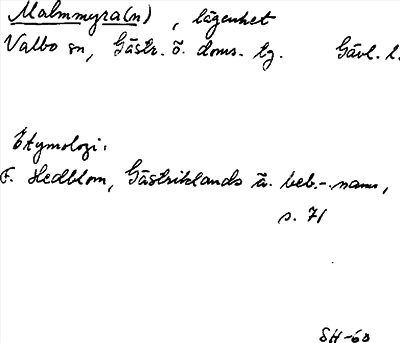 Malmmyra(n), lägenhet
Valbo sn, Gästr. ö. doms. lg. Gävl. l.
Etymologi:
F. Hedblom, Gästriklands ä. beb.-namn,
s. 71
SH-60